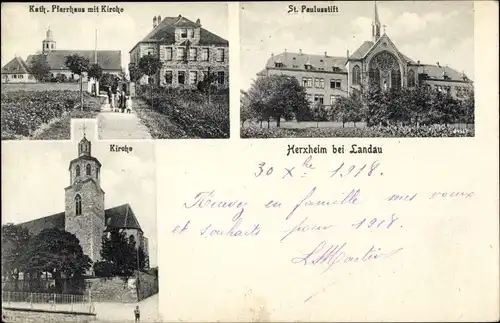 Kath. Pfarrhaus mit Kirche
St. Paulusstift
Kirche
Herxheim bei Landau
30 Xbre 1918.
Recevez en famille mes voeux
et souhaits pour 1918.
L. Martin